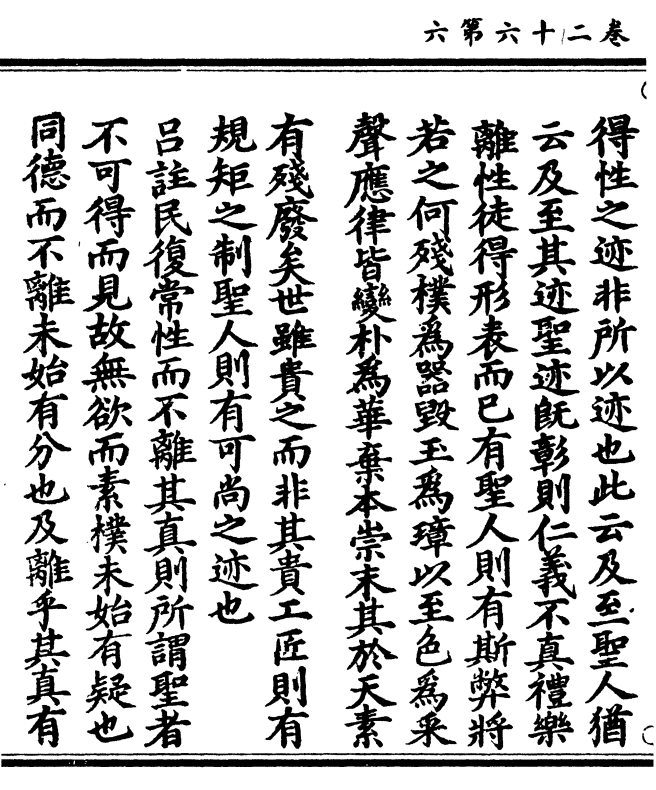 卷二十六第六
得性之迹非所以迹也此云及至聖人猶
云及至其迹聖迹旣彰則仁義不真禮樂
離性徒得形表而已有聖人則有斯弊將
若之何殘樸爲器毀玉爲璋以至色爲采
聲應律皆變朴爲華棄本崇末其於天素
有殘廢矣世雖貴之而非其貴工匠則有
規矩之制聖人則有可尚之迹也
呂註民復常性而不離其真則所謂聖者
不可得而見故無欲而素樸未始有疑也
同德而不離未始有分也及離乎其真有